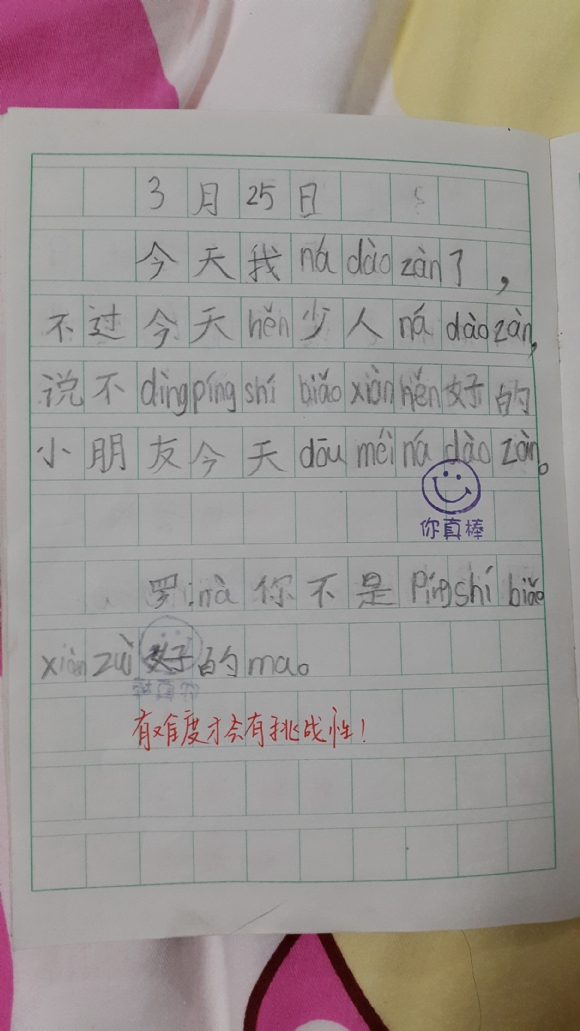 3月25日
今天我ná dào zàn了，
不过今天hěn少人ná dào zàn，
说不dìng píng shí biǎo xiàn hěn好的
小朋友今天dōu méi ná dào zàn。
你真棒
罗：nà你不是Píng shí biǎo
xiàn zuì好的ma。
有难度才会有挑战性！